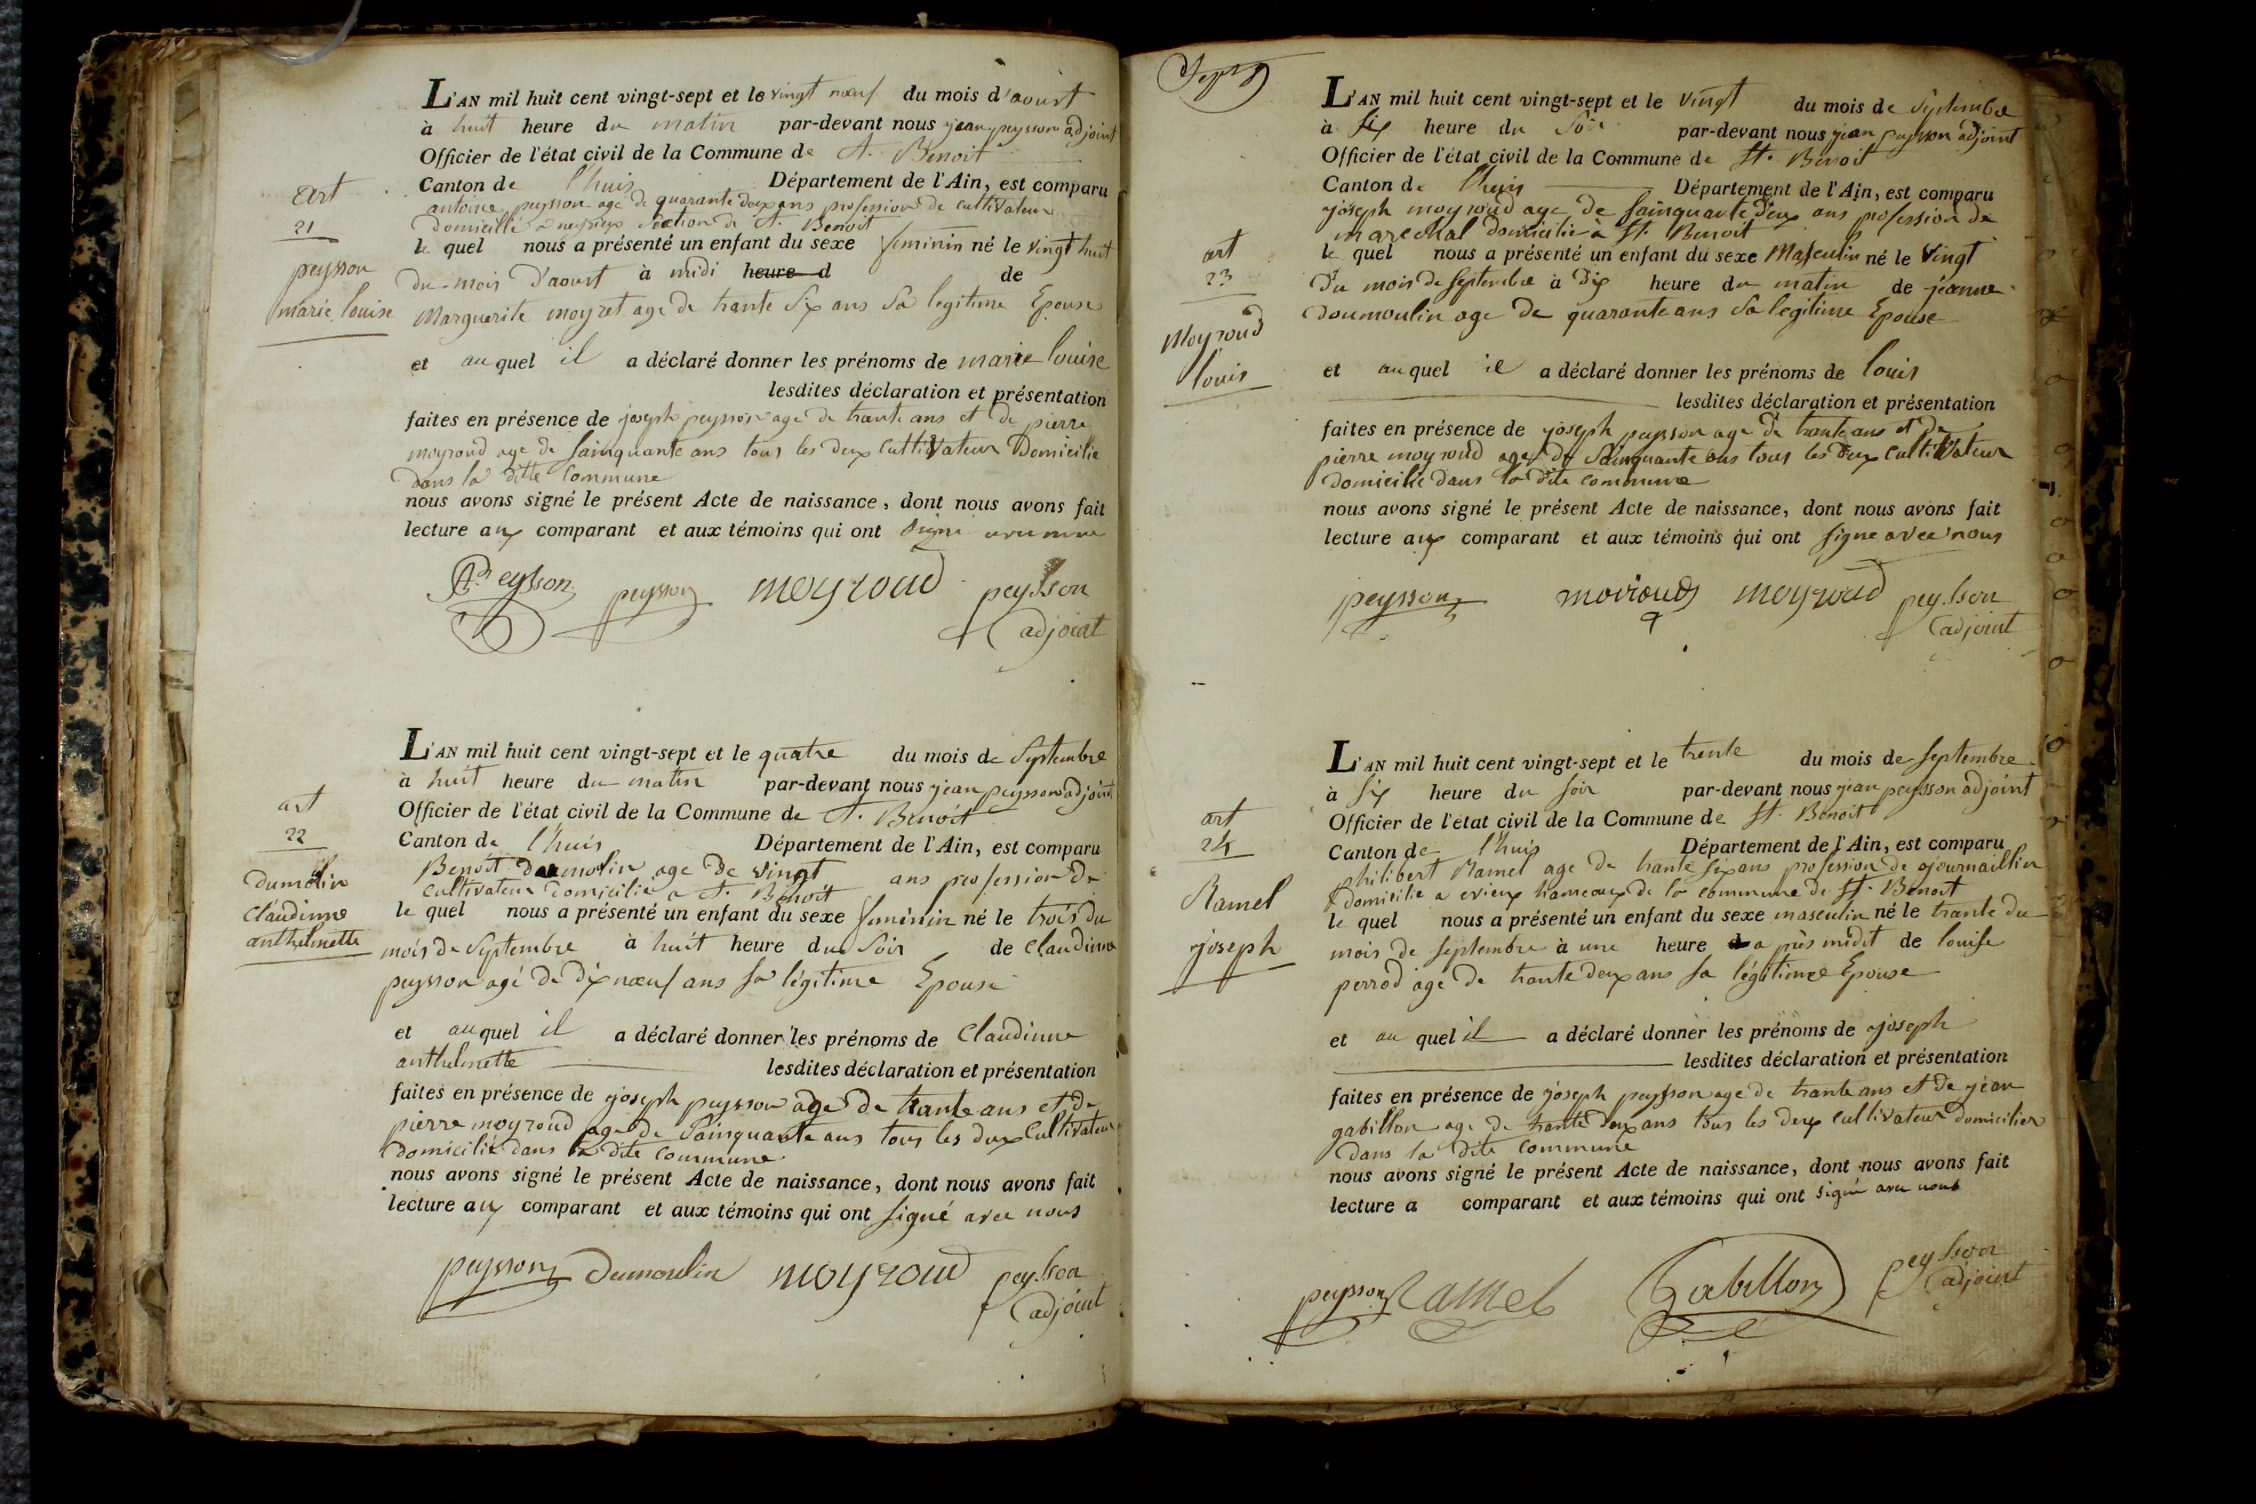 art
21
peysson
marie louise
L'AN mil huit cent vingt-sept et le vingt nœuf du mois d'aoust
à huit heure du matin par-devant nous jean peysson adjoint
Officier de l'état civil de la Commune de St. Benoit
Canton de l'huis Département de l'Ain, est comparu
antoine peysson age de quarante deux ans profession de cultivateur
Domicillié a section de St. Benoit
le quel nous a présenté un enfant du sexe feminin né le vingt huit
du mois d'aoust à midi heure d de
Marguerite moyret age de trante six ans sa legitime Epouse
et au quel il a déclaré donner les prénoms de marie louise
lesdites déclaration et présentation
faites en présence de joseph peysson age de trante ans et de pierre
moyroud age de sainquante ans tous les deux cultivateur Domicilie
dans la ditte commune
nous avons signé le présent Acte de naissance, dont nous avons fait
lecture aux comparant et aux témoins qui ont signé avec nous
Peysson peysson moyroud peysson
adjoint
art
22
dumolin
Claudinne
anthelmette
L'AN mil huit cent vingt-sept et le quatre du mois de Septembre
à huit heure du matin par-devant nous jean peysson adjoint
Officier de l'état civil de la Commune de St. Benoit
Canton de l'huis Département de l'Ain, est comparu
Benoit dumolin age de vingt ans profession de
cultivateur domicilié a St. Benoit
le quel nous a présenté un enfant du sexe feminin né le trois du
mois de Septembre à huit heure du soir de Claudinne
peysson agé de dix nœuf ans sa légitime Epouse
et au quel il a déclaré donner les prénoms de Claudinne
anthelmette lesdites déclaration et présentation
faites en présence de joseph peysson age de trante ans et de
pierre moyroud age de sainquante ans tous les deux cultivateur
domicilié dans la dite commune
nous avons signé le présent Acte de naissance, dont nous avons fait
lecture aux comparant et aux témoins qui ont signé avec nous
peysson Dumoulin moyroud peysson
adjoint
art
23
Moyroud
louis
L'AN mil huit cent vingt-sept et le vingt du mois de Septembre
à six heure du soir par-devant nous jean peysson adjoint
Officier de l'état civil de la Commune de St. Benoit
Canton de l'huis Département de l'Ain, est comparu
joseph moyroud age de sainquante deux ans profession de
marechal domicilié à St. Benoit
le quel nous a présenté un enfant du sexe Masculin né le vingt
du mois de Septembre à dix heure du matin de jeanne
doumoulin age de quarante ans sa legitime Epouse
et au quel il a déclaré donner les prénoms de louis
lesdites déclaration et présentation
faites en présence de joseph peysson age de trante ans et de
pierre moyroud age de sainquante ans tous les deux cultivateur
domicilié dans la dite commune
nous avons signé le présent Acte de naissance, dont nous avons fait
lecture aux comparant et aux témoins qui ont signe avec nous
peysson moyroud peysson
adjoint
art
24
Ramel
joseph
L'AN mil huit cent vingt-sept et le trente du mois de septembre
à six heure du soir par-devant nous jean peysson adjoint
Officier de l'état civil de la Commune de St. Benoit
Canton de l'huis Département de l'Ain, est comparu
philibert Ramel age de trante six ans profession de journaillier
domicilié a evieux hameaux de la commune de St. Benoit
le quel nous a présenté un enfant du sexe masculin né le trante du
mois de septembre à une heure a près midit de louise
perrod agé de trante deux ans sa légitime Epouse
et au quel il a déclaré donner les prénoms de joseph
lesdites déclaration et présentation
faites en présence de joseph peysson age de trante ans et de jean
gabillon age de trante deux ans tous les deux cultivateur domicilier
dans la dite commune
nous avons signé le présent Acte de naissance, dont nous avons fait
lecture a comparant et aux témoins qui ont signé avec nous
peysson Ramel Gabillon peysson
adjoint